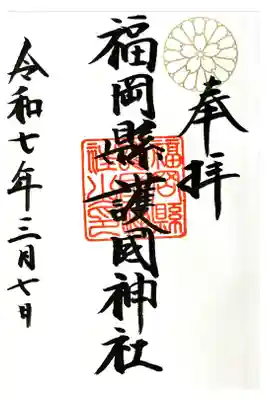 奉拝
福岡縣護國神社
令和七年三月七日
福岡縣